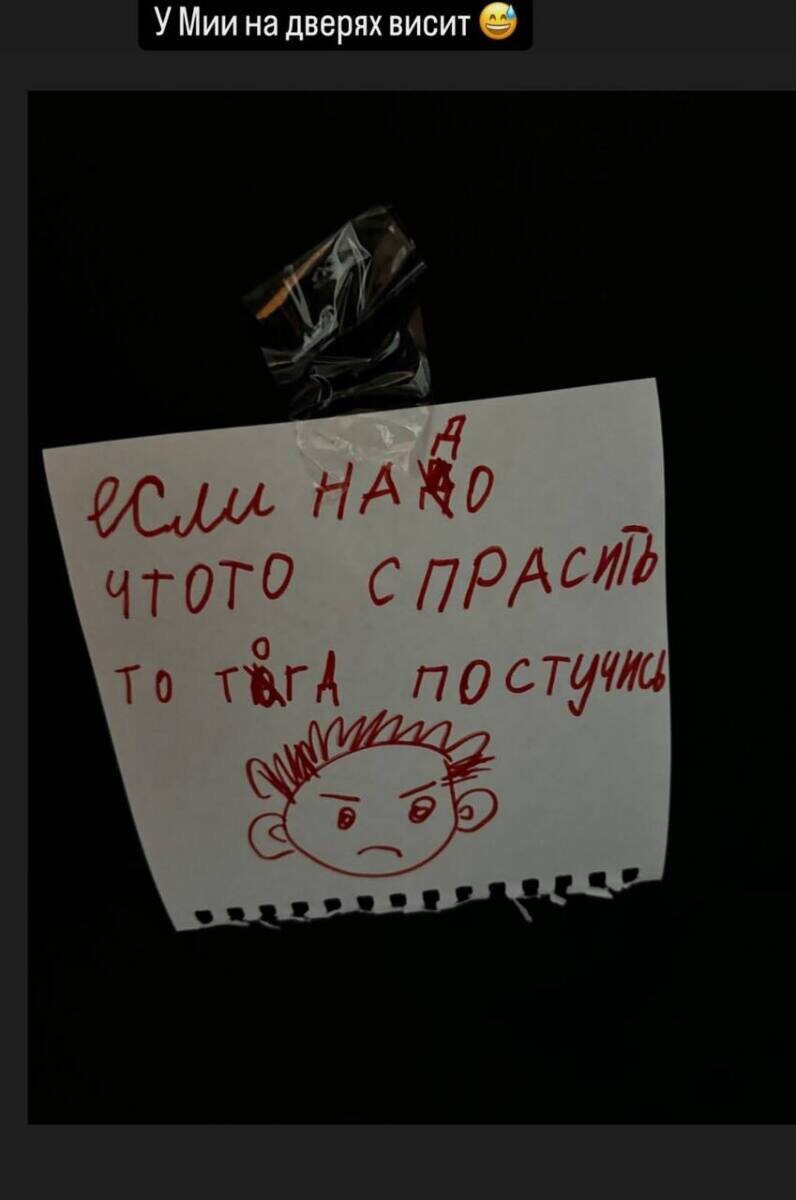 У Мии на дверях висит 😅
если НАДО
ЧТОТО СПРАСИТЬ
ТО ТОГДА ПОСТУЧИСЬ